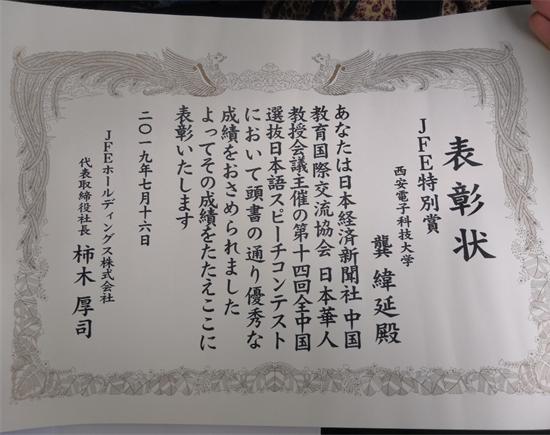 表彰状
JFE特別賞
西安電子科技大学
龔緯延殿
あなたは日本経済新聞社 中国
教育国際交流協会 日本華人
教授会議主催の第十四回全中国
選抜日本語スピーチコンテスト
において頭書の通り優秀な
成績をおさめられました
よってその成績をたたえここに
表彰いたします
二〇一九年七月十六日
JFEホールディングス株式会社
代表取締役社長 柿木厚司